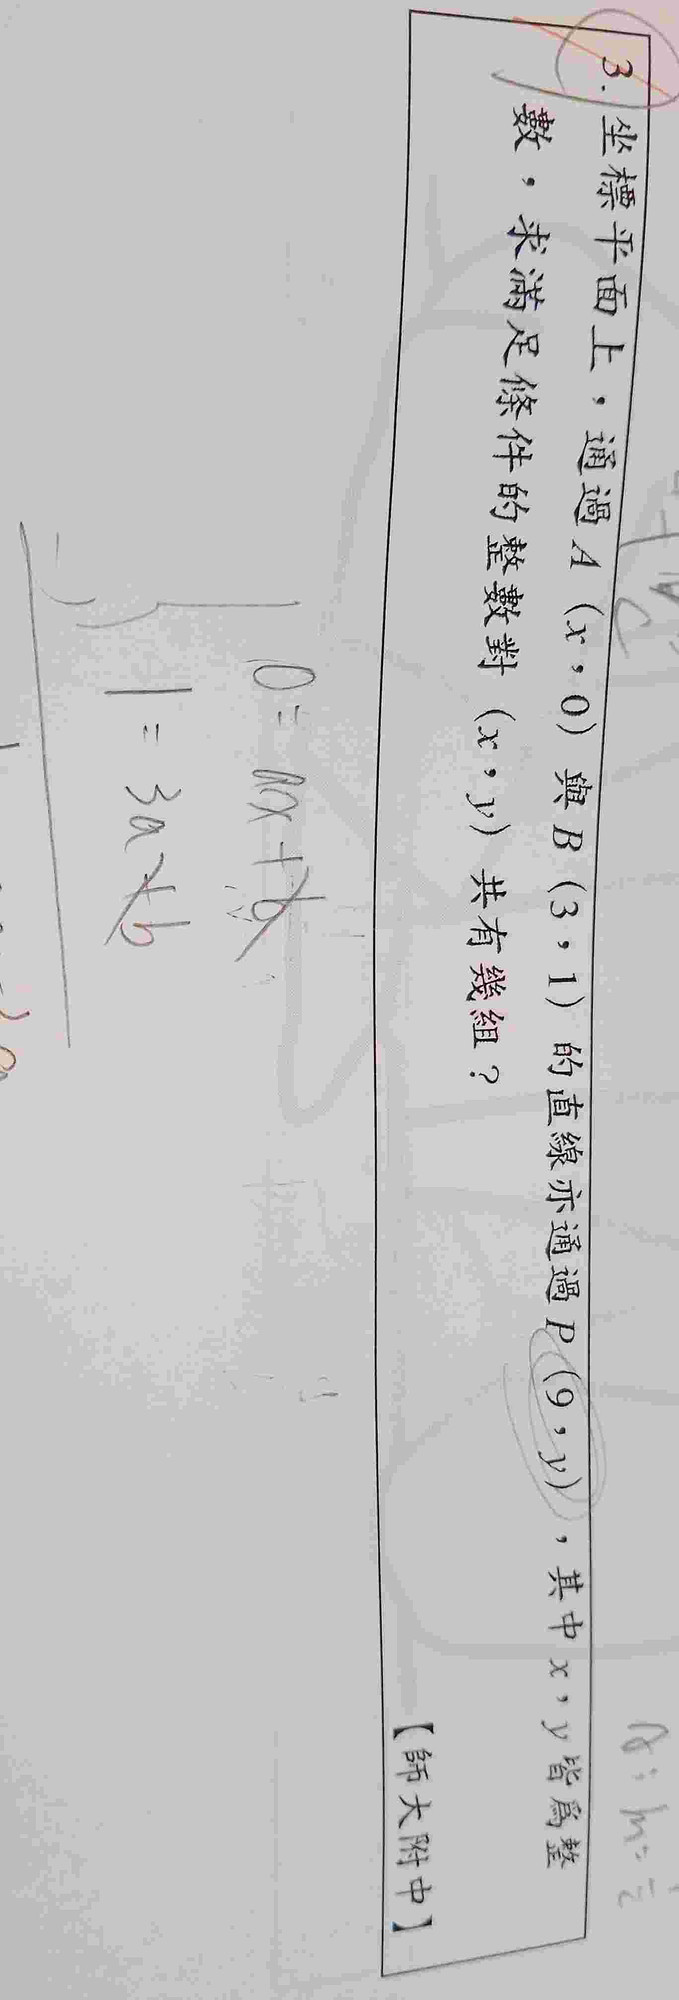 3. 坐標平面上，通過 A（x，0）與 B（3，1）的直線亦通過 P（9，y），其中 x，y 皆為整
數，求滿足條件的整數對（x，y）共有幾組？
【師大附中】
0 = ax + b
-) 1 = 3a + b